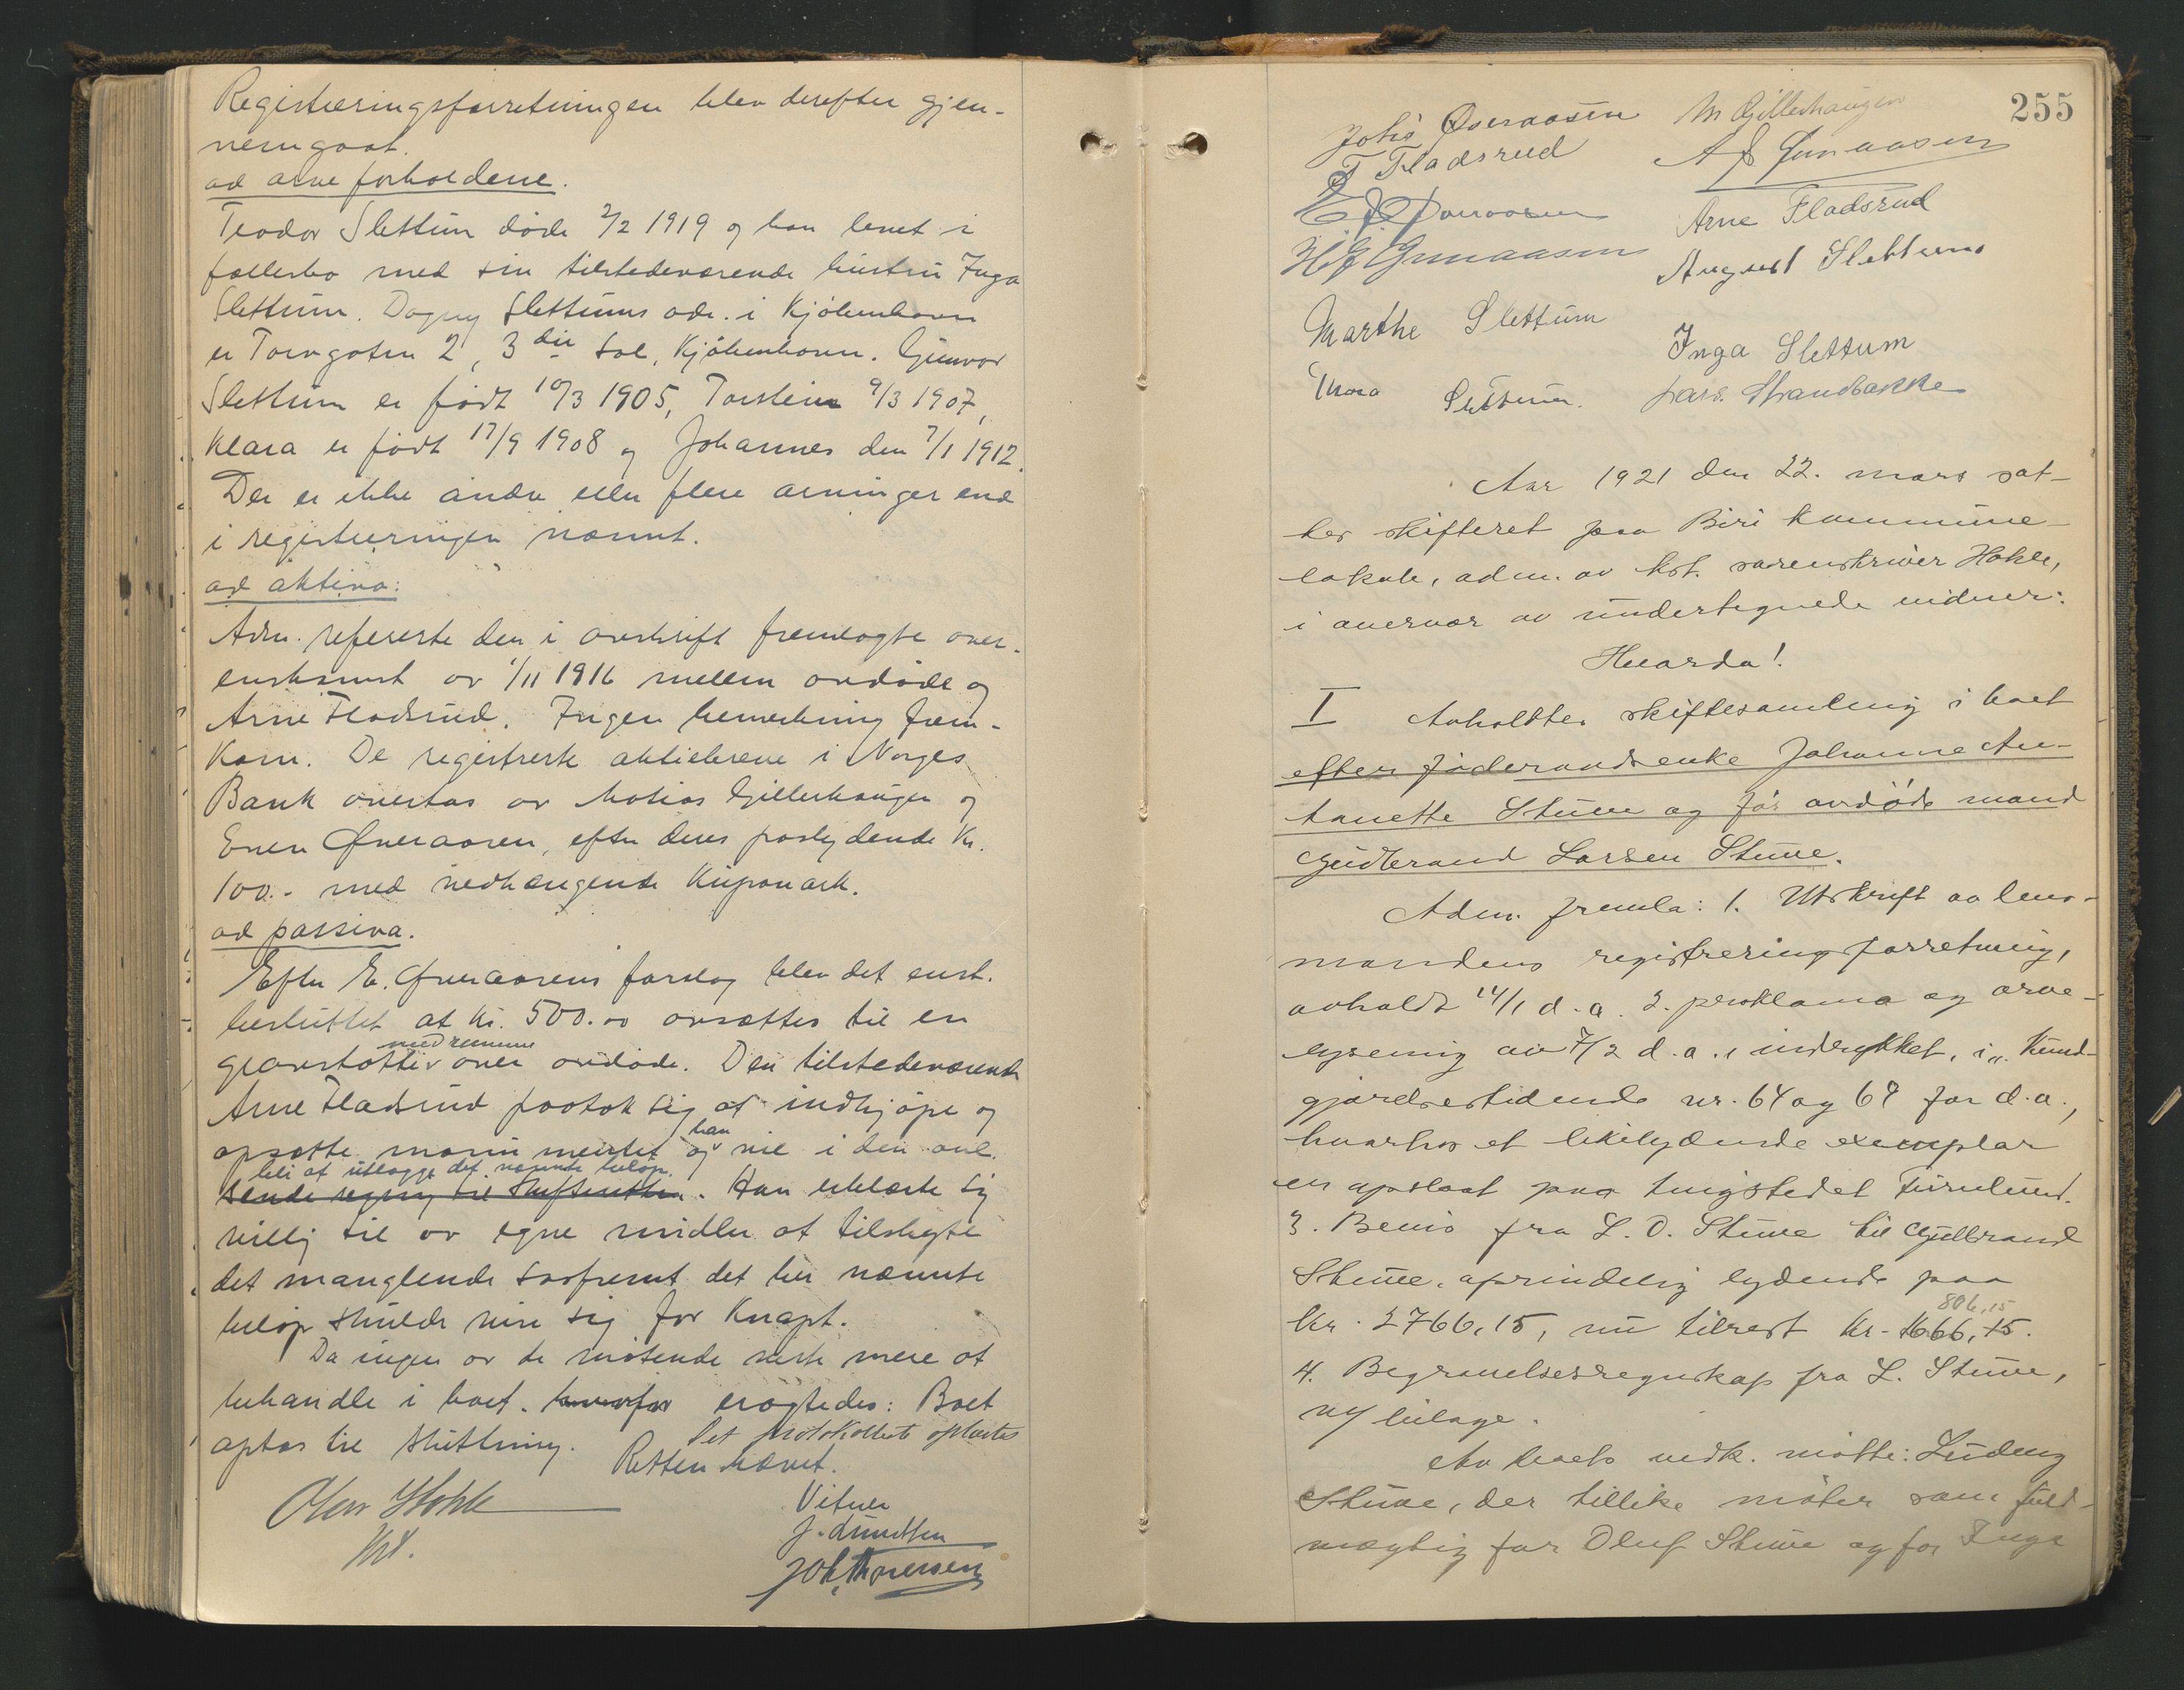 Registreringsforretningen blev derefter gjen-
nemgaat.
ad arveforholdene.
Teodor Slettum døde 2/2 1919 og han levet i
fællesbo med sin tilstedeværende hustru Inga
Slettum. Dagny Slettums adr. i Kjøbenhavn
er Torvgaten 2, 3die sal, Kjøbenhavn. Gunvor
Slettum er født 10/3 1905, Torstein 9/3 1907,
Klara er født 17/9 1908 og Johannes den 7/1 1912.
Der er ikke andre eller flere arvinger end
i registreringen nævnt.
ad aktiva:
Adm. refererte den i avskrift fremlagte over-
enskomst av 1/11 1916 mellem avdøde og
Arne Fladsrud. Ingen bemerkning frem-
kom. De registrerte aktiebreve i Norges
Bank overtas av Matias Gillerhaugen og
Even Øveraasen, efter deres paalydende Kr.
100.- med vedhængende kuponark.
ad passiva.
Efter E. Øveraasens forslag blev det enst.
besluttet at kr. 500.00 avsættes til en
med ramme
gravstøtte over avdøde. Den tilstedeværende
Arne Fladsrud paatok sig at indkjøpe og
han
opsætte monumentet og vil i den anl.
bli at utlægge det nævnte beløp.
sende regning til skifteretten. Han erklærte sig
villig til av egne midler at tilskyte
det manglende saafremt det her nævnte
beløp skulde vise sig for knapt.
Da ingen av de møtende hadde mere at
behandle i boet. hvorfor eragtedes: Boet
optas til slutning. Det protokollerte oplæstes
Retten hævet.
Olav Hokle
kst.
Vitner
J. Amundsen
Joh. Thoresen
255
Johs Øveraasen M Gillerhaugen
T Fladsrud
A J Øveraasen
E. J. Øveraasen
Arne Fladsrud
H. J. Øveraasen
August Slettum
Marthe Slettum
Inga Slettum
Thora Slettum. Lars. Strandbakke
Aar 1921 den 22. mars sat-
tes skifteret paa Biri kommune-
lokale, adm. av kst. sorenskriver Hokle,
i overvær av undertegnede vidner.
Hvorda!
I Avholdtes skiftesamling i boet
efter føderaadsenke Johanne An-
tonette Stuve og før avdøde mand
Gudbrand Larsen Stuve.
Adm. fremla: 1. Utskrift av lens-
mandens registreringsforretning,
avholdt 14/1 d. a. 2. proklama og arve-
lysning av 7/2 d. a., indrykket i „Kund-
gjørelsestidende nr. 64 og 69 for d. a.,
hvorhos et likelydende exemplar
er opslaat paa tingstedet Furulund.
3. Bevis fra L. O. Stuve til Gulbrand
Stuve, oprindelig lydende paa
806,15
Kr. 2766,15, nu tilrest kr. 1666,15.
4. Begravelsesregnskap fra L. Stuve,
m/ bilage.
Av boets vedk. møtte: Ludvig
Stuve, der tillike møter som fuld-
mægtig for Oluf Stuve og for Inga